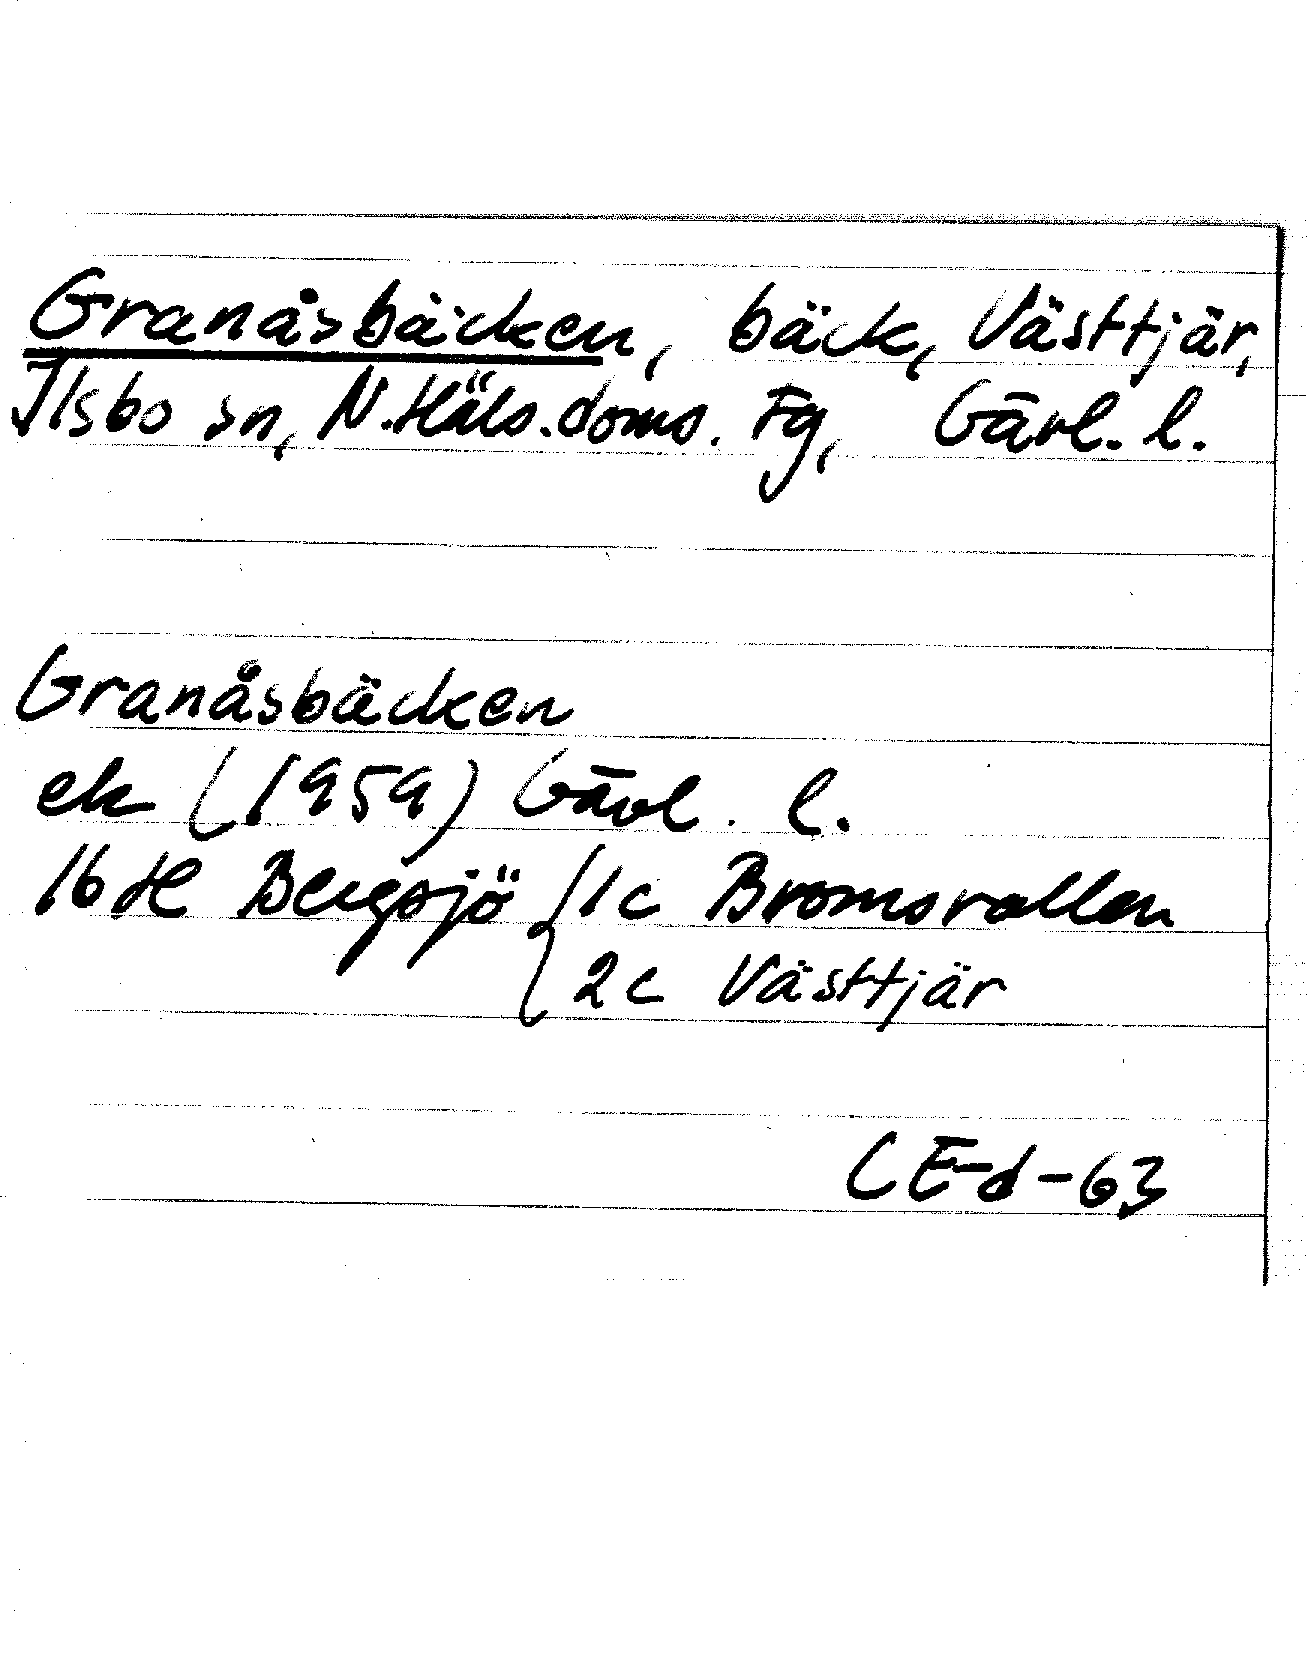 Granåsbäcken, bäck, Västtjär,
Ilsbo sn, N.Häls.doms. Fg, Gävl. l.
Granåsbäcken
ek (1959) Gävl. l.
16 H Bergsjö { 1c Bromsvallen
2c Västtjär
CE-d-63